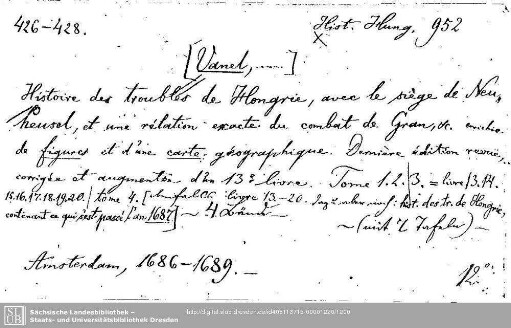 426-428.
Hist. Hung. 952
[Vanel, ....]
Histoire des troubles de Hongrie, avec le siège de Neu-
heusel, et une rélation exacte du combat de Gran, &c. enrichie
de figures et d'une carte géographique. Dernière édition revue,
corrigée et augmentée d'un 13e livre. Tome 1.2. 3. = livre 13.14.
15.16.17.18.19.20. tome 4. livre 13.-20. hist. des tr. de Hongrie,
contenant ce qui s'est passé l'an 1687] ~ 4 Bände ~
~ (mit 7 Tafeln) ~
Amsterdam, 1686-1689. _
12°.
Sächsische Landesbibliothek –
Staats- und Universitätsbibliothek Dresden